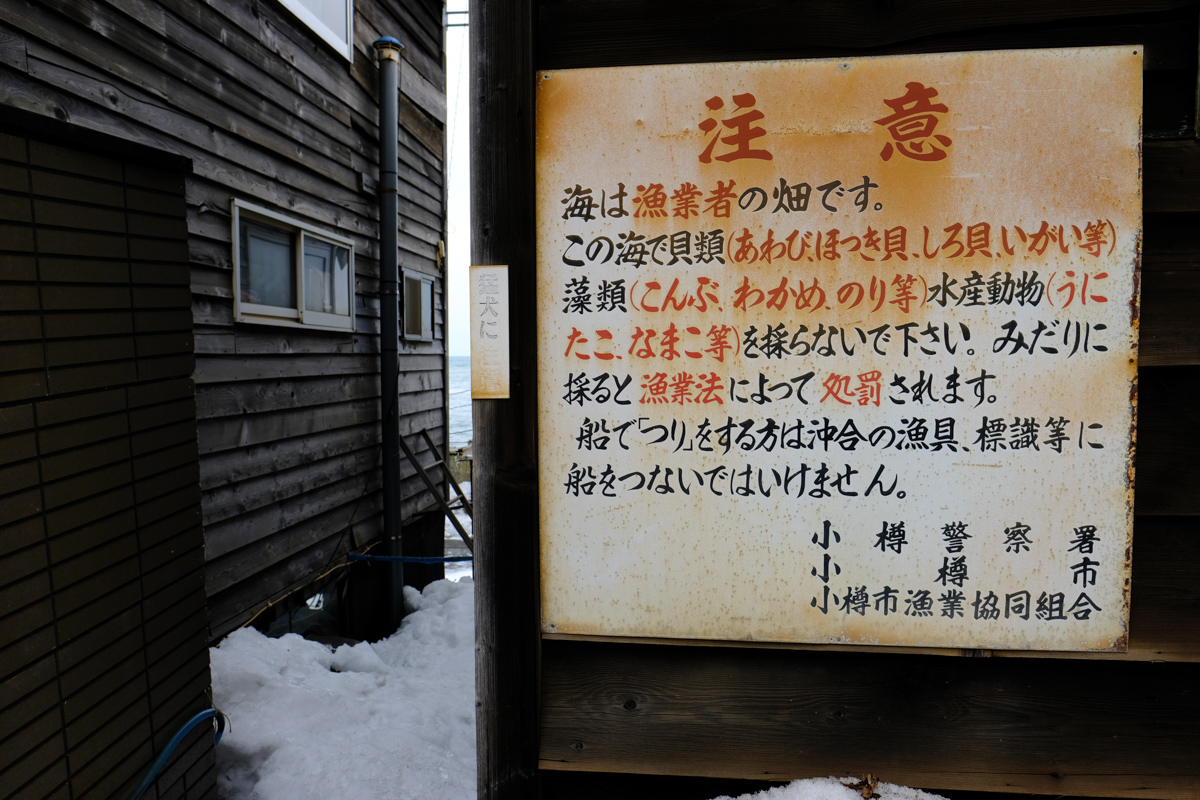 注意
海は漁業者の畑です。
この海で貝類(あわび、ほつき貝、しろ貝、いがい等)
藻類(こんぶ、わかめ、のり等)水産動物(うに
たこ、なまこ等)を採らないで下さい。みだりに
採ると漁業法によって処罰されます。
船で「つり」をする方は沖合の漁具、標識等に
船をつないではいけません。
小樽警察署
小樽市
小樽市漁業協同組合
猛犬に